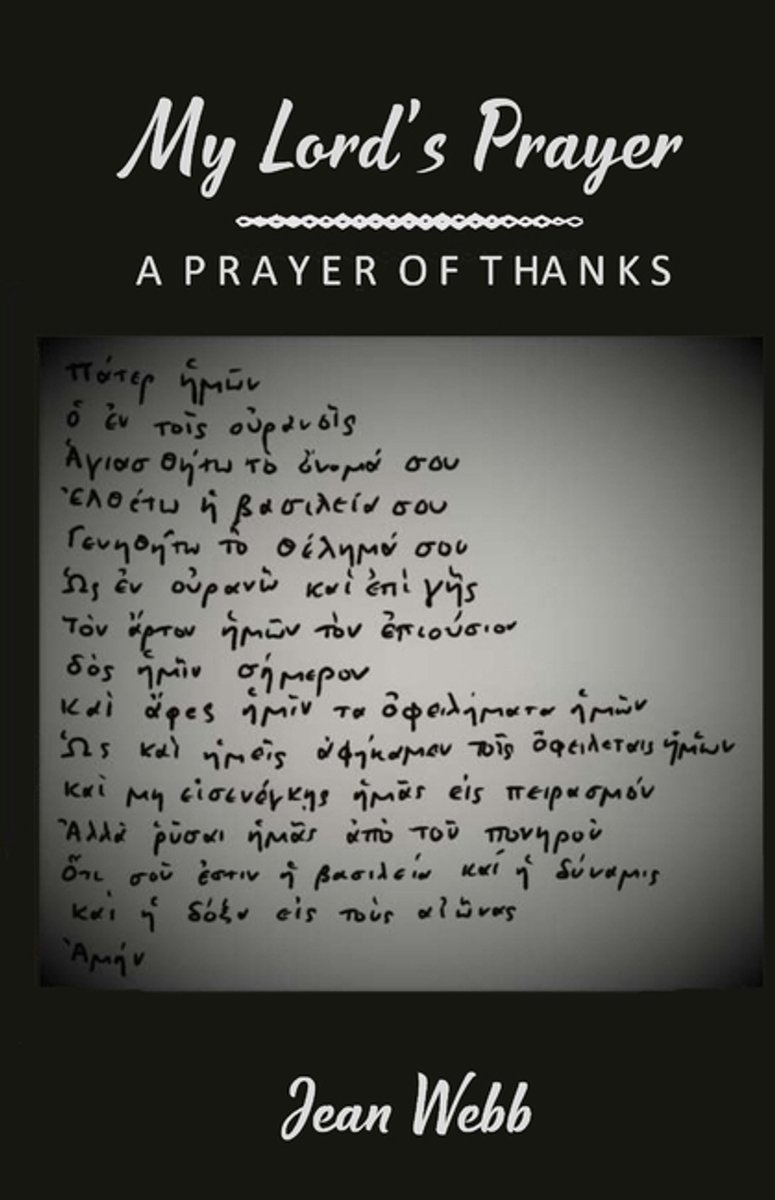 My Lord's Prayer
A PRAYER OF THANKS
Πάτερ ἡμῶν
ὁ ἐν τοῖς οὐρανοῖς
Ἁγιασθήτω τὸ ὄνομά σου
Ἐλθέτω ἡ βασιλεία σου
Γενηθήτω τὸ θέλημά σου
Ὡς ἐν οὐρανῷ καὶ ἐπὶ γῆς
Τὸν ἄρτον ἡμῶν τὸν ἐπιούσιον
δὸς ἡμῖν σήμερον
καὶ ἄφες ἡμῖν τα ὀφειλήματα ἡμῶν
Ὡς καὶ ἡμεῖς ἀφήκαμεν τοῖς ὀφειλεταις ἡμῶν
καὶ μη εἰσενέγκῃς ἡμᾶς εἰς πειρασμόν
Ἀλλὰ ῥῦσαι ἡμᾶς ἀπὸ τοῦ πονηροῦ
ὅτι σοῦ ἐστιν ἡ βασιλεία καὶ ἡ δύναμις
καὶ ἡ δόξα εἰς τοὺς αἰῶνας
Ἀμήν
Jean Webb